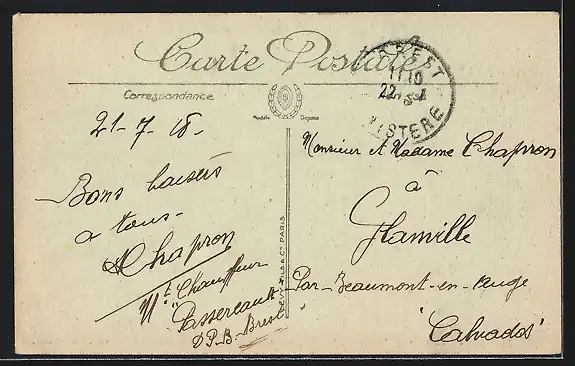 Carte Postale
Correspondance
Modèle Déposé
BREST
11 10
22
FINISTERE
21-7-18-
Bons baisers
a tous-
Chapron
Mt Chauffeur
"Passereau"
D.P.B. Brest
LEVY FILS & Cie PARIS
Monsieur et Madame Chapron
à
Glamille
Par-Beaumont-en-Auge
"Calvados"